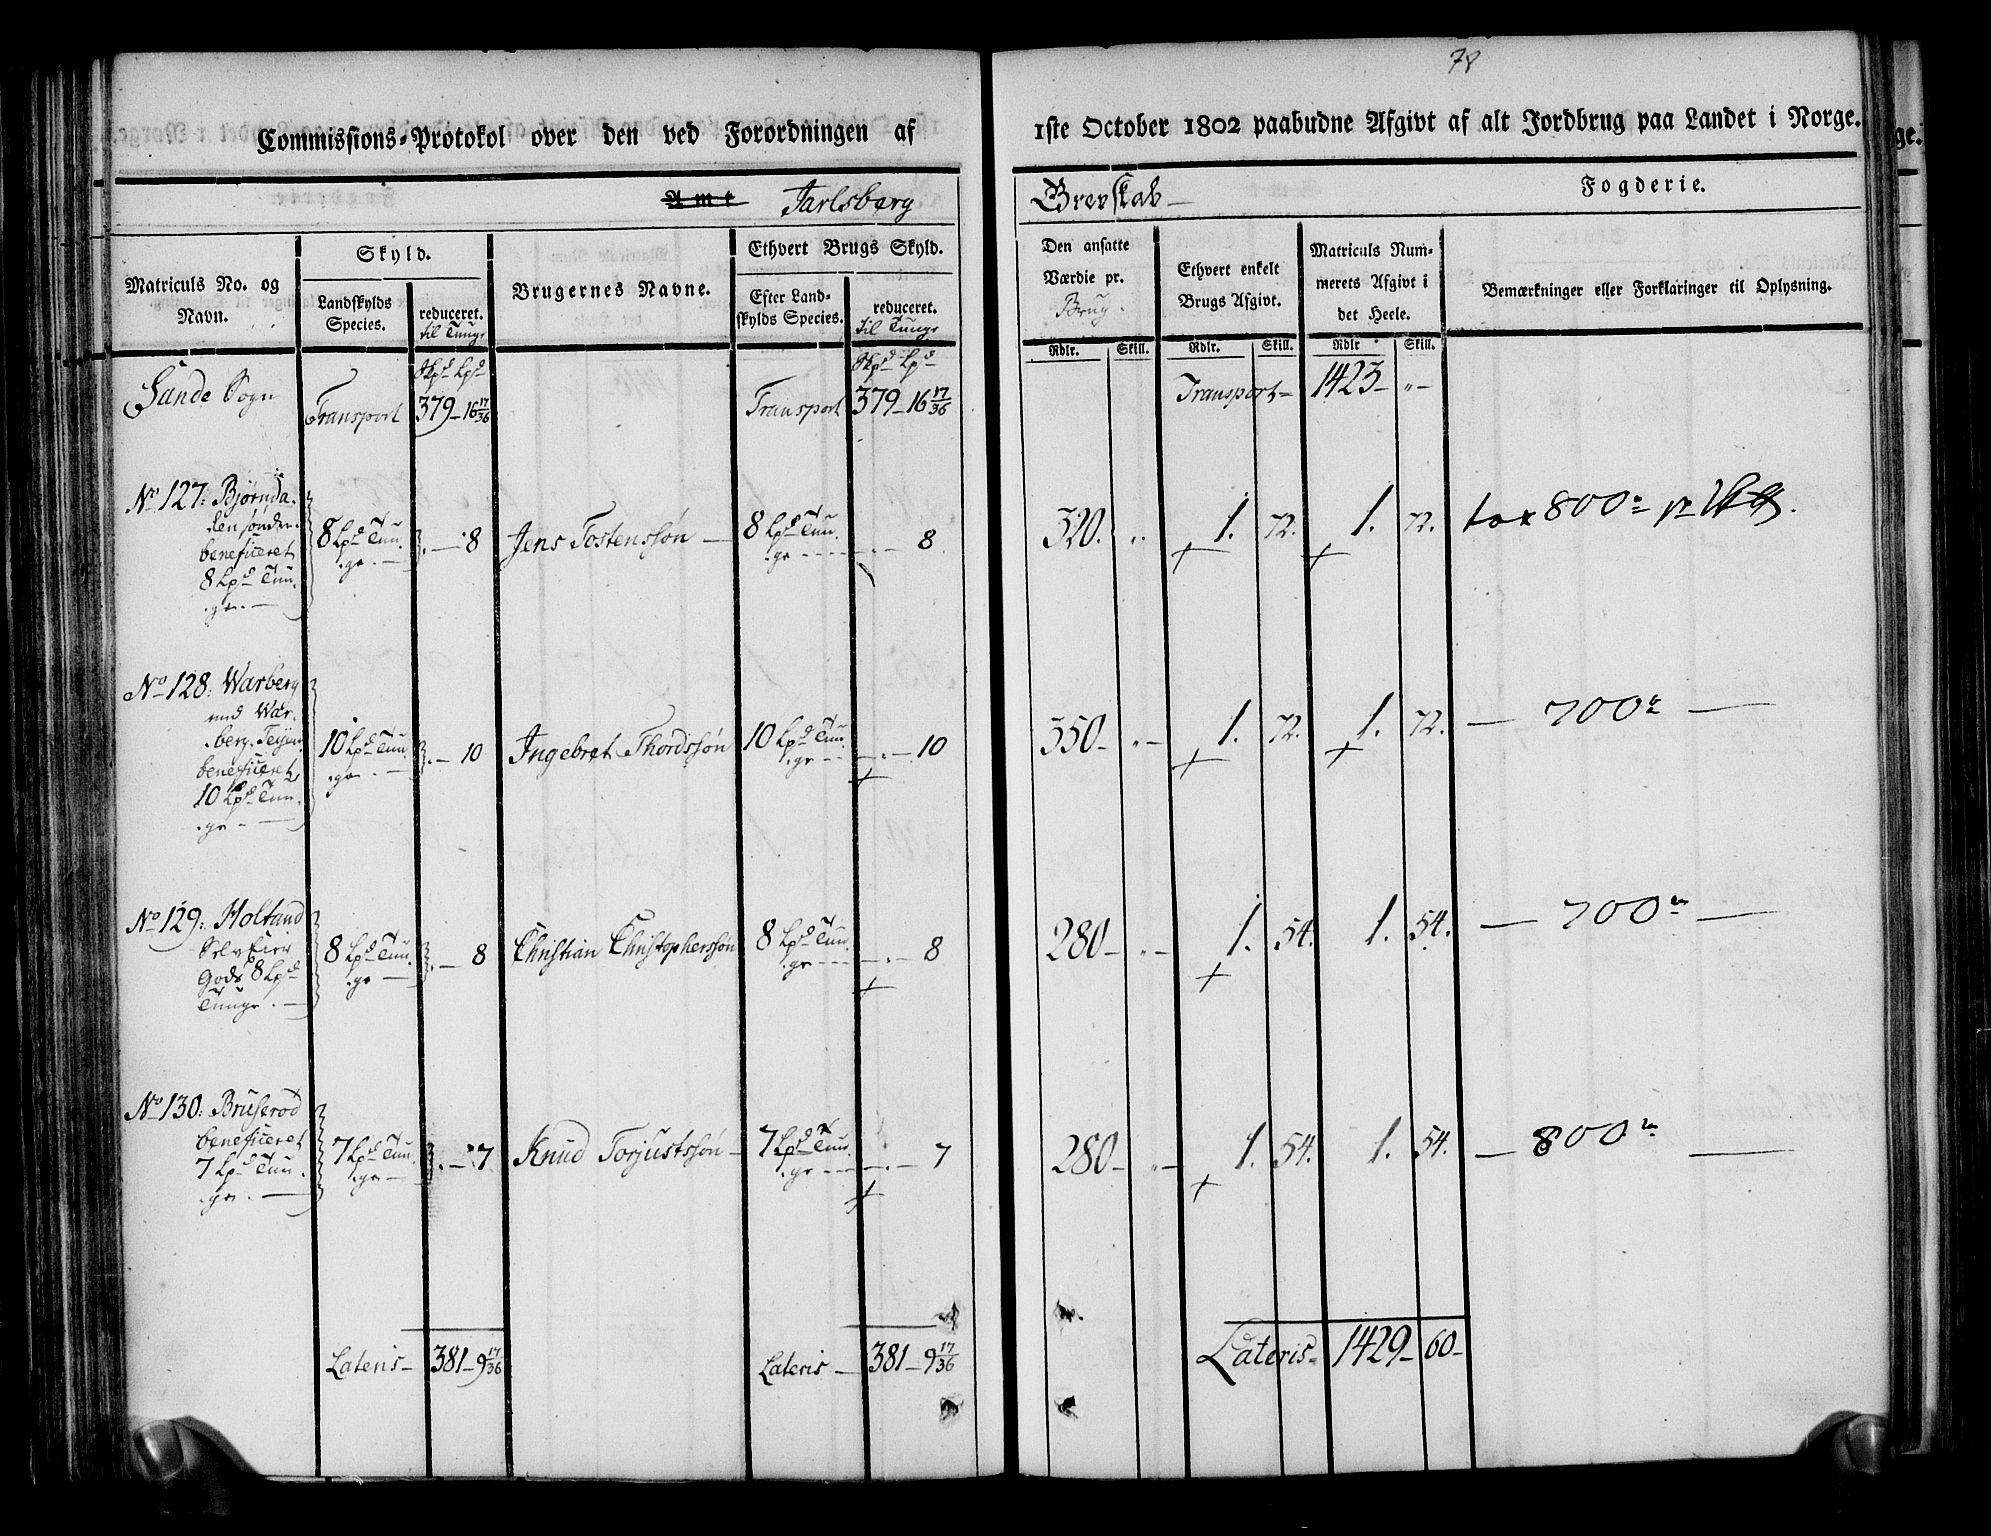 78
Commissions-Protokol over den ved Forordningen af
1ste October 1802 paabudne Afgivt af alt Jordbrug paa Landet i Norge.
Amt Jarlsberg
Grevskab
Fogderie.
Matriculs No. og
Navn.
Skyld.
Landskylds
Species.
reduceret.
til Tunge
Brugernes Navne.
Ethvert Brugs Skyld.
Efter Land-
skylds Species.
reduceret.
til Tunge
Den ansatte
Værdie pr.
Brug.
Ethvert enkelt
Brugs Afgivt.
Matriculs Num-
merets Afgivt i
det Heele.
Bemærkninger eller Forklaringer til Oplysning.
Rdlr. Skill. Rdlr. Skill. Rdlr Skill.
Skpd Lpd
Skpd Lpd
Sande Sogn Transport 379 – 16 17/36 Transport 379 – 16 17/36 Transport – 1423 – „ –
No 127: Bjørnda.
den sønder.
beneficeret
8 Lpd Tun.
.ge. —
8 Lpd Tun.
.ge. —
. — 8
Jens Tostenssøn —
8 Lpd Tun.
.ge - - - -
. — 8
320. „ 1. 72. 1. 72. tax 800
No 128: Warberg
med War.
.berg. Teijen
beneficeret
10 Lpd Tun.
.ge - —
10 Lpd Tun.
.ge . —
. — 10
Ingebret Thordssøn
10 Lpd Tun.
.ge - - -
. — 10
350 – „ – 1. 72. 1. 72. — 700 —
No 129: Holtand
Selveier
Gods 8 Lpd
Tunge . —
8 Lpd Tun.
.ge —
. — 8
Christian Christopherssøn
8 Lpd Tun.
.ge - - -
. — 8
280 – „ – 1. 54. 1. 54. — 700 —
No 130: Bruserød
beneficeret
7 Lpd Tun.
.ge . —
7 Lpd Tun.
.ge —
. — 7
Knud Torjustssøn –
7 Lpd Tun.
.ge - - -
. — 7
280 – „ – 1. 54. 1. 54. — 800 —
Lateris – 381 – 9 17/36 Lateris – 381 – 9 17/36 Lateris – 1429 – 60 –
ge.